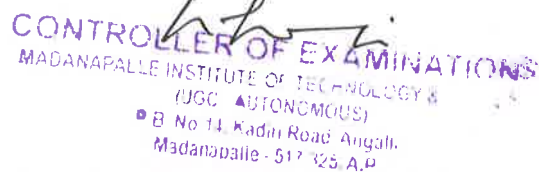 CONTROLLER OF EXAMINATIONS
MADANAPALLE INSTITUTE OF TECHNOLOGY &
(UGC AUTONOMOUS)
P B. No 14, Kadiri Road Angall,
Madanapalle - 517 325 A.P